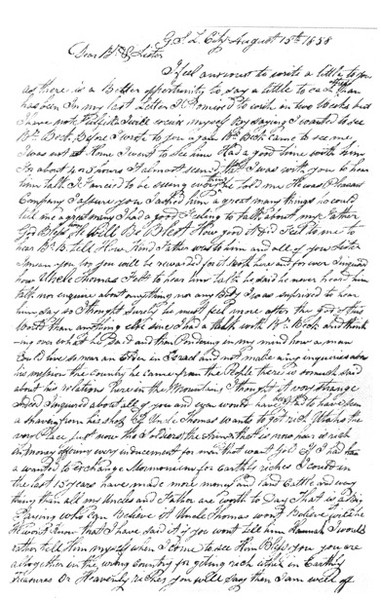 G.S.L. City August 15th 1858
Dear Br & Sister
I feel anxious to write a little to you
as there is a Better opportunity to say a little to each than
has been In my last Letter I Promised to write in two weeks but
I have not fulfiled I will excuse myself By saying I wanted to see
Br Beck Before I wrote to you again Br Beck came to see me
I was not at Home I went to see him Had a good time with him
for about hours I almost that I was with you to hear
him talk I fancied to be seeing every thing he told me He was Pleasant
Company I assure you I asked him a great many things he could
tell me a great many I had a good feeling to talk about my Father
God Bless Him He Will Be Blest How good it did feel to me to
hear Br B. tell How Kind Father was to him and all of you Sister
I mean you for you will be rewarded for it Both here and for ever I inquired
how Uncle Thomas Felt to hear him talk he said he never heard him
talk nor enquire about anything nor any Body I was surprised to hear
him say so I thought surely he must feel more after the God of this
World than anything else since I had a talk with Br Beck and think-
ing over what he Said and then Pondering in my mind how a man
Could live so near an Elder in Israel and not make any inquiries about
his mission the Country he came from the People there is so much said
about his relations here in the Mountains I thought it was strange
I inquired about all of you and even would have to have seen
a shaving from his shop If Uncle Thomas wants to get rich Utah is the
very Place just now the Soldiers the Army that is now here is rich
in money offering every inducement for men that want gold If I had
a wanted to exchange Mormonism for Earthly riches I could in
the last 15 years have made more money and had Cattle and every
thing than all my Uncles and Father are worth to Day That is a Big
Saying who can Believe it Uncle Thomas wont Believe it
He wont know that I have said it if you wont tell him Hannah I would
rather tell Him myself when I come to see Him Bless you you are
altogether in the wrong Country for getting rich either in Earthly
treasures or Heavenly riches you will say then I am well off